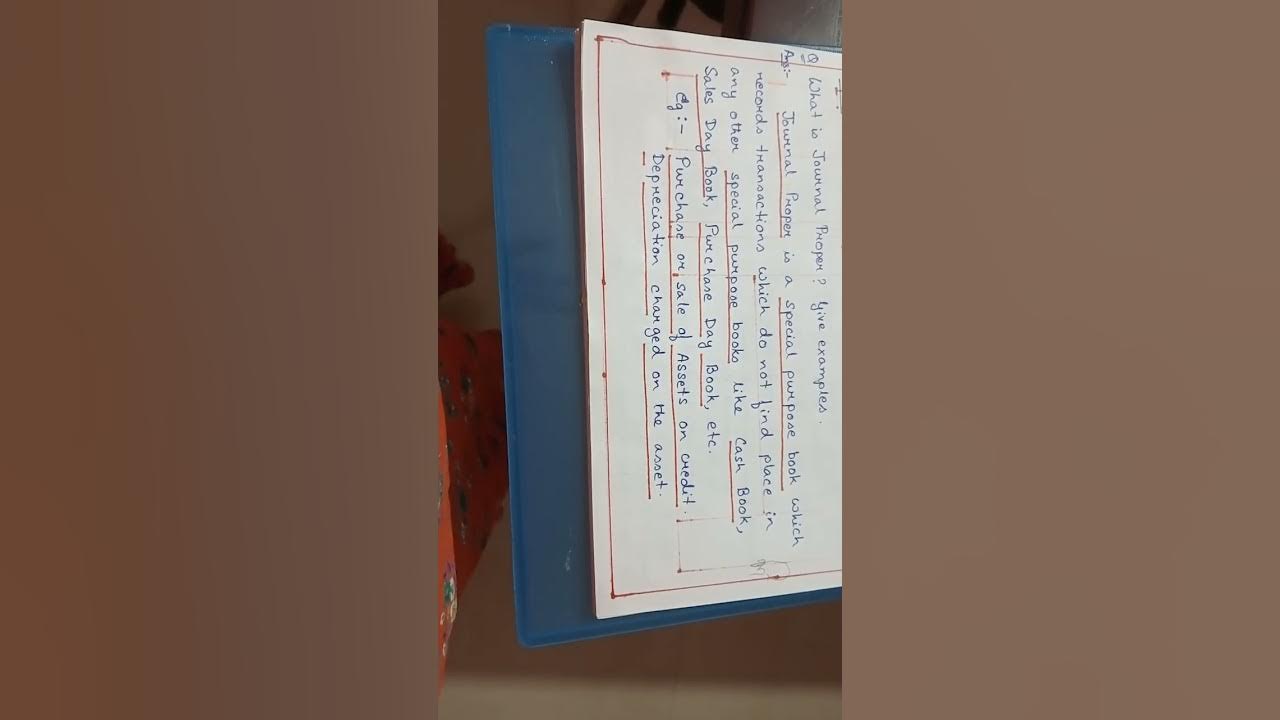 Q What is Journal Proper? Give examples.
Ans:- Journal Proper is a special purpose book which
records transactions which do not find place in
any other special purpose books like Cash Book,
Sales Day Book, Purchase Day Book, etc.
eg:- Purchase or sale of Assets on credit.
Depreciation charged on the asset.